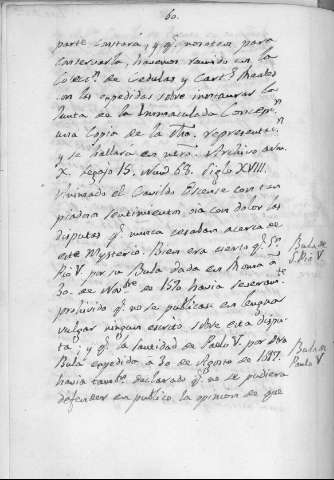 60.
parte constará, y q.e nosotros para
conservarla, havemos reunido en la
Colecc.n de Cedulas y Cart.s Reales
con las expedidas sobre instaurar la
Junta de la Inmaculada Concepc.n
una Copia de la dha. representac.n
y se hallará en ntro. Archivo arm.
X. Legajo 15. Num 68. Siglo XVIII.
Animado el Cavildo Oscense con tan
piadoso sentimiento, oia con dolor las
disputas q.e nunca cesaban acerca de
este Mysterio. Bien era cierto q.e S.n
Pio V. por su Bula dada en Roma á
30. de Nov.bre de 1570 havia severam.te
prohivido q.e no se publicase en lengua
vulgar ningun escrito sobre esta dispu-
ta; y q.e la santidad de Paulo V. por otra
Bula expedida á 30 de Agosto de 1617.
havia tamb.n declarado q.e no se pudiera
defender en publico la opinion de que
Bula de
S. Pio V.
Bula de
Paulo V.